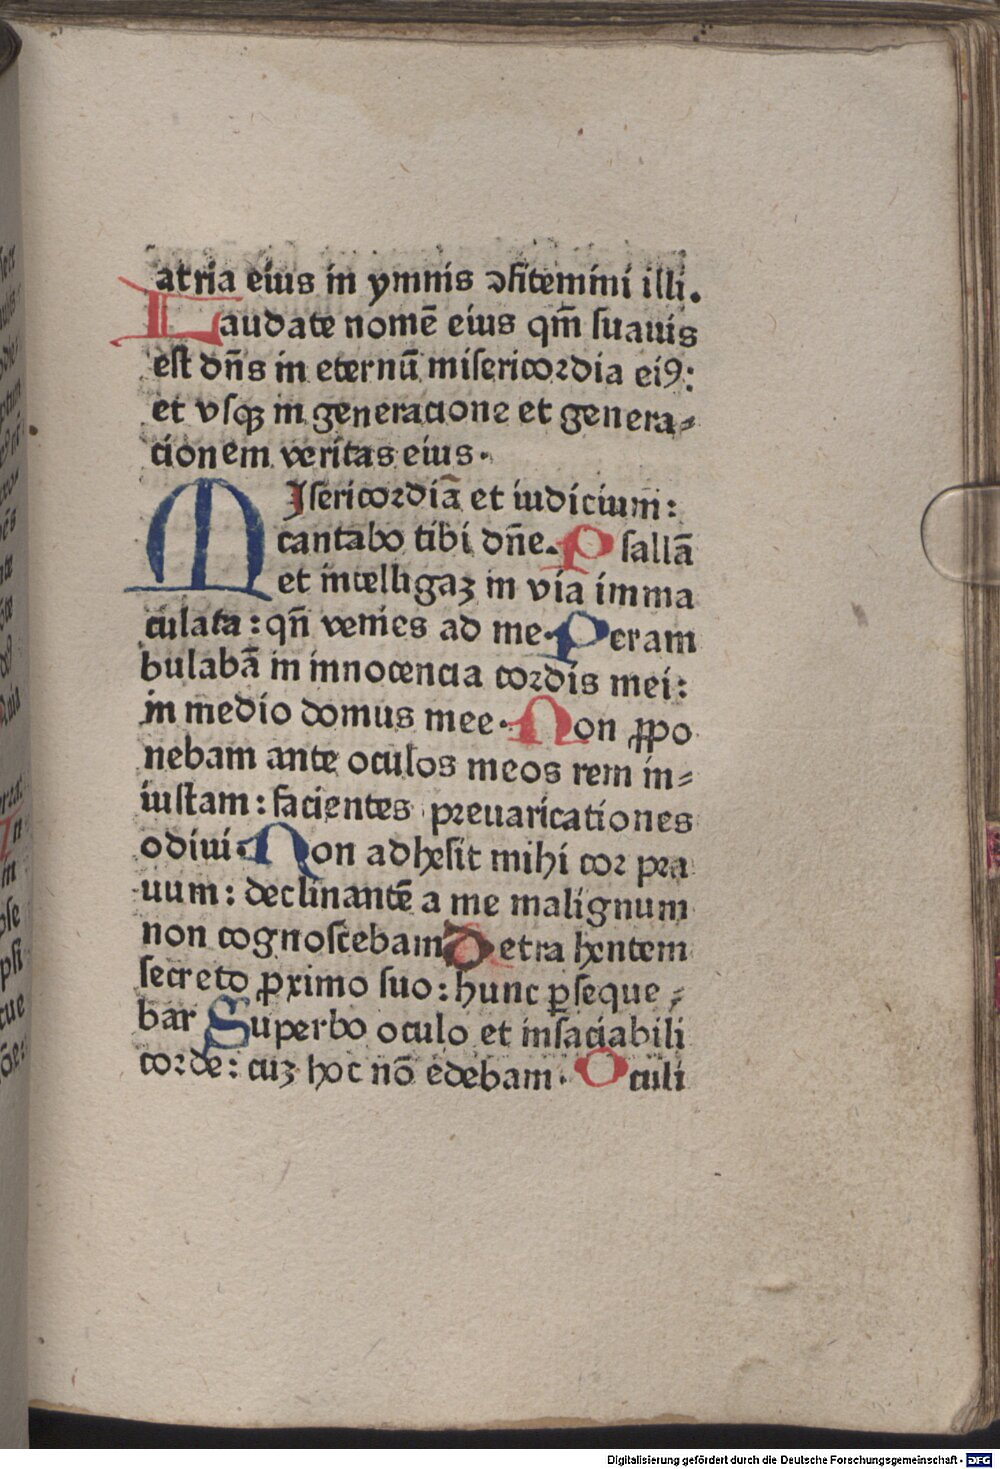 atria eius in ymnis ɔfitemini illi.
Laudate nomē eius qm̄ suauis
est dn̄s in eternū misericordia ei9:
et vsqꝫ in generacione et genera⸗
cionem veritas eius.
MIsericordiā et iudicium:
cantabo tibi dn̄e. Psallā
et intelligaz in via imma
culata: qn̄ venies ad me. Peram
bulabā in innocencia cordis mei:
in medio domus mee. Non ꝓpo
nebam ante oculos meos rem in⸗
iustam: facientes preuaricationes
odiui. Non adhesit mihi cor pra
uum: declinantē a me malignum
non cognoscebam Detrahentem
secreto ꝓximo suo: hunc ꝑseque⸗
bar Superbo oculo et insaciabili
corde: cuz hoc nō edebam. Oculi
Digitalisierung gefördert durch die Deutsche Forschungsgemeinschaft - DFG